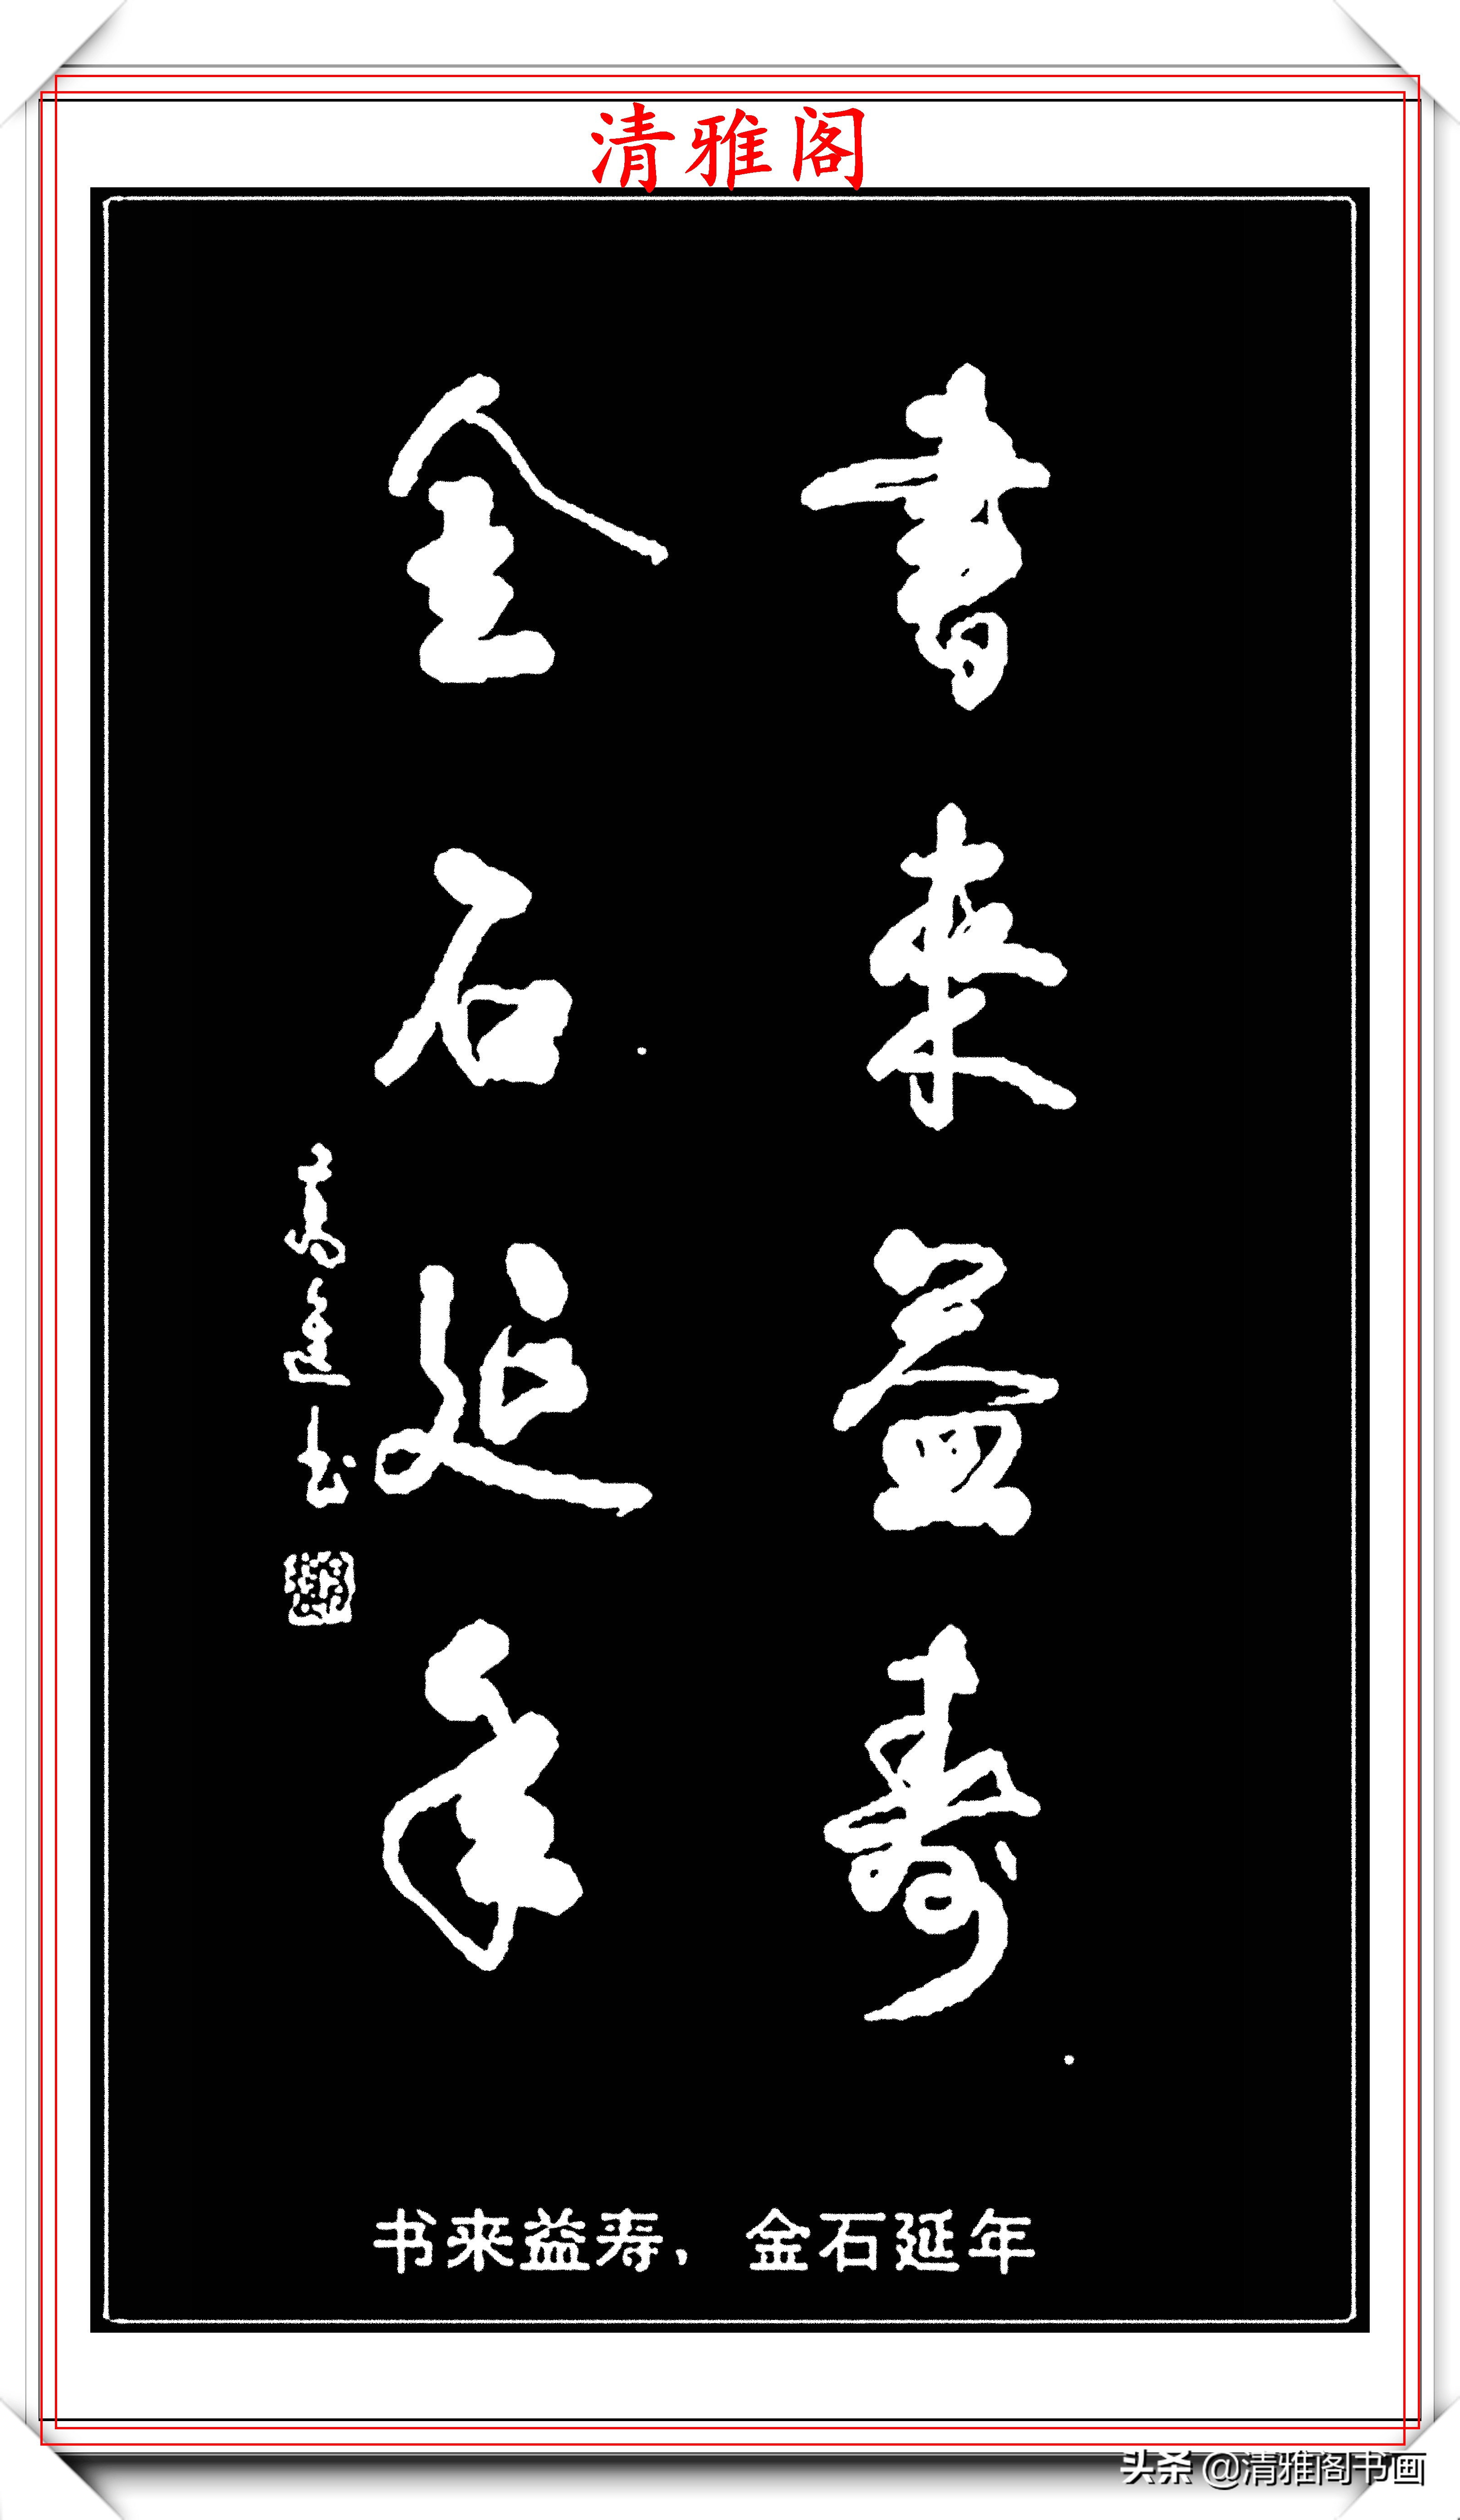 清雅阁
書来益壽
金石延年
书来益寿，金石延年
头条 @清雅阁书画